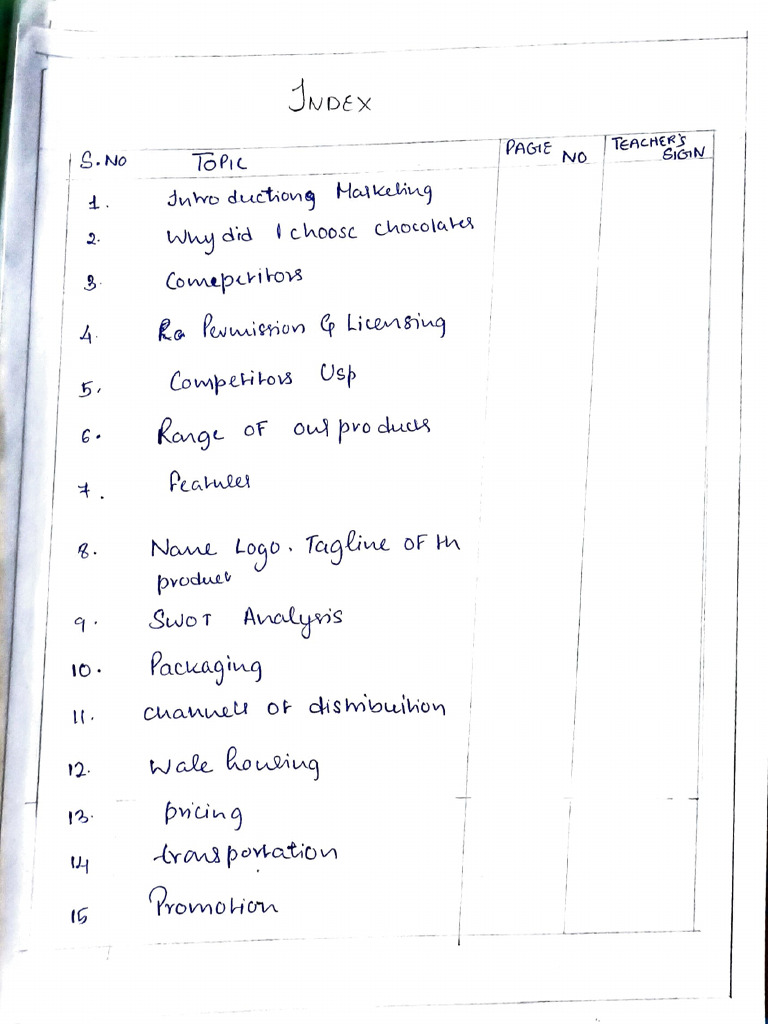 INDEX
S.NO TOPIC PAGE NO TEACHER'S SIGN
1. Introduction Marketing
2. Why did I choose chocolates
3. Comepetitors
4. Permission & Licensing
5. Competitors Usp
6. Range OF our products
7. Features
8. Name Logo. Tagline OF th
product
9. SWOT Analysis
10. Packaging
11. Channels of distribuition
12. Ware housing
13. pricing
14 transportation
15 Promotion